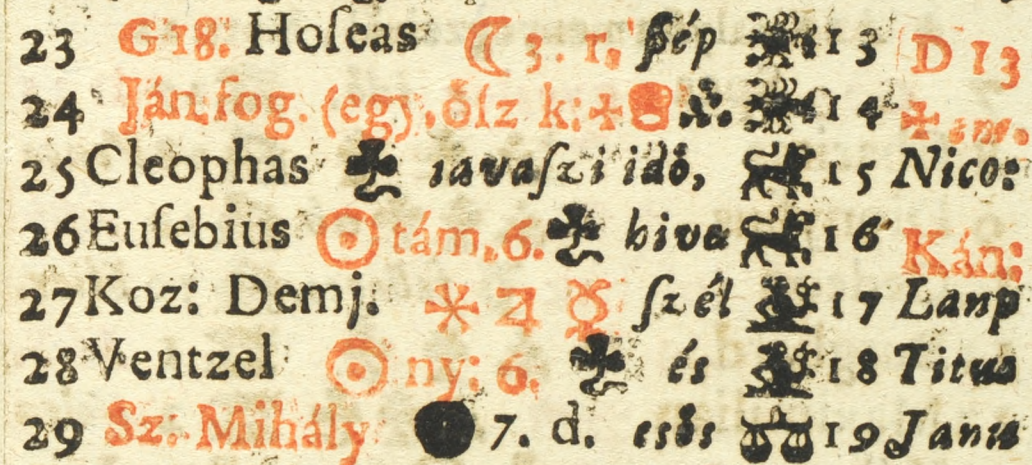 23 G 18. Hoſeas ☾ 3. r. ſzép 13 D 13
24 Ján. fog. (egy. őſz k: ✠ 14 ✠
25 Cleophas ♣ tavaſzi idő, 15 Nico:
26 Euſebius ☉ tám. 6. ♣ hives 16 Kán:
27 Koz: Demj. ⚹ ♃ ☿ ſzél 17 Lamp
28 Ventzel ☉ ny: 6. ♣ és 18 Titus
29 Sz: Mihály ● 7. d. esős 19 Janu